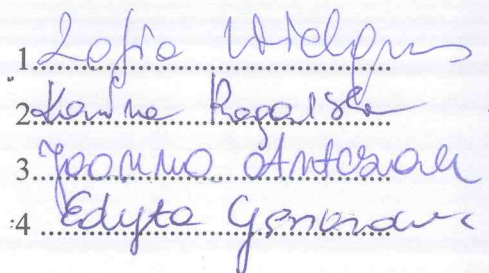 1 Zofia Wielgus
2 Rogalska
3 Joanna Antczak
4 Edyta